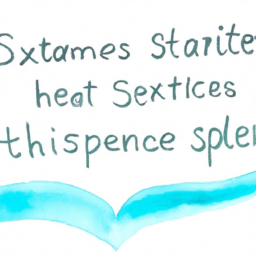 Sxtames Starite
heat Sextices
thispence spler